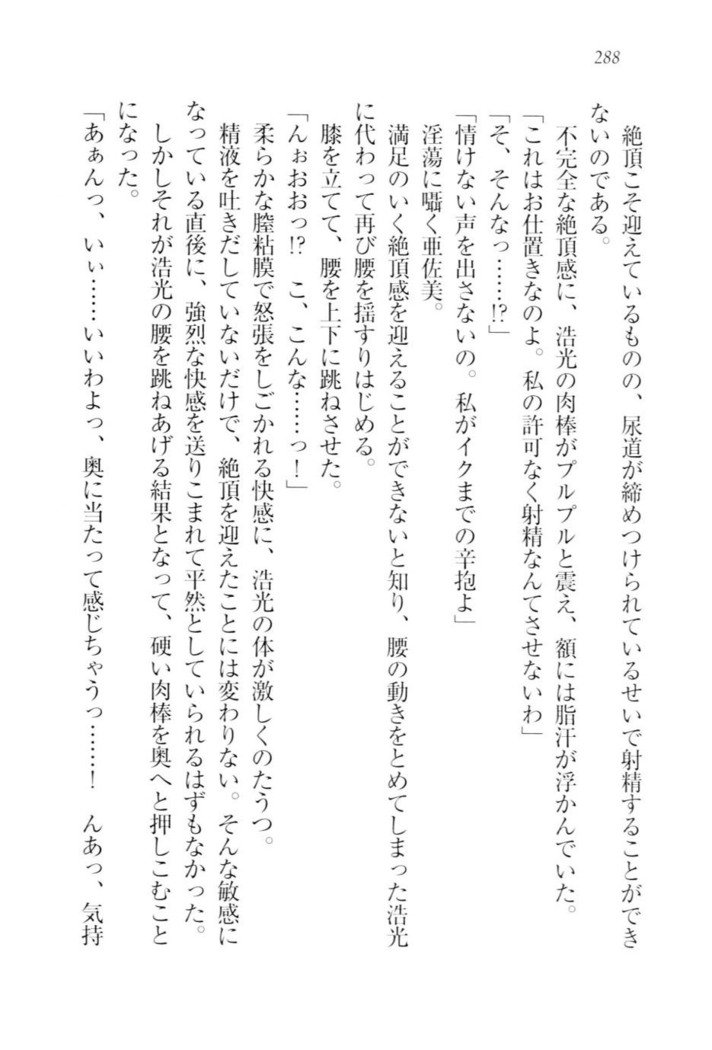 288
絶頂こそ迎えているものの、尿道が締めつけられているせいで射精することができ
ないのである。
不完全な絶頂感に、浩光の肉棒がプルプルと震え、額には脂汗が浮かんでいた。
「これはお仕置きなのよ。私の許可なく射精なんてさせないわ」
「そ、そんなっ……!?」
「情けない声を出さないの。私がイクまでの辛抱よ」
淫蕩に囁く亜佐美。
満足のいく絶頂感を迎えることができないと知り、腰の動きをとめてしまった浩光
に代わって再び腰を揺すりはじめる。
膝を立てて、腰を上下に跳ねさせた。
「んぉおおっ!?　こ、こんな……っ！」
柔らかな膣粘膜で怒張をしごかれる快感に、浩光の体が激しくのたうつ。
精液を吐きだしていないだけで、絶頂を迎えたことには変わりない。そんな敏感に
なっている直後に、強烈な快感を送りこまれて平然としていられるはずもなかった。
しかしそれが浩光の腰を跳ねあげる結果となって、硬い肉棒を奥へと押しこむこと
になった。
「あぁんっ、いぃ……いいわよっ、奥に当たって感じちゃうっ……！　んあっ、気持